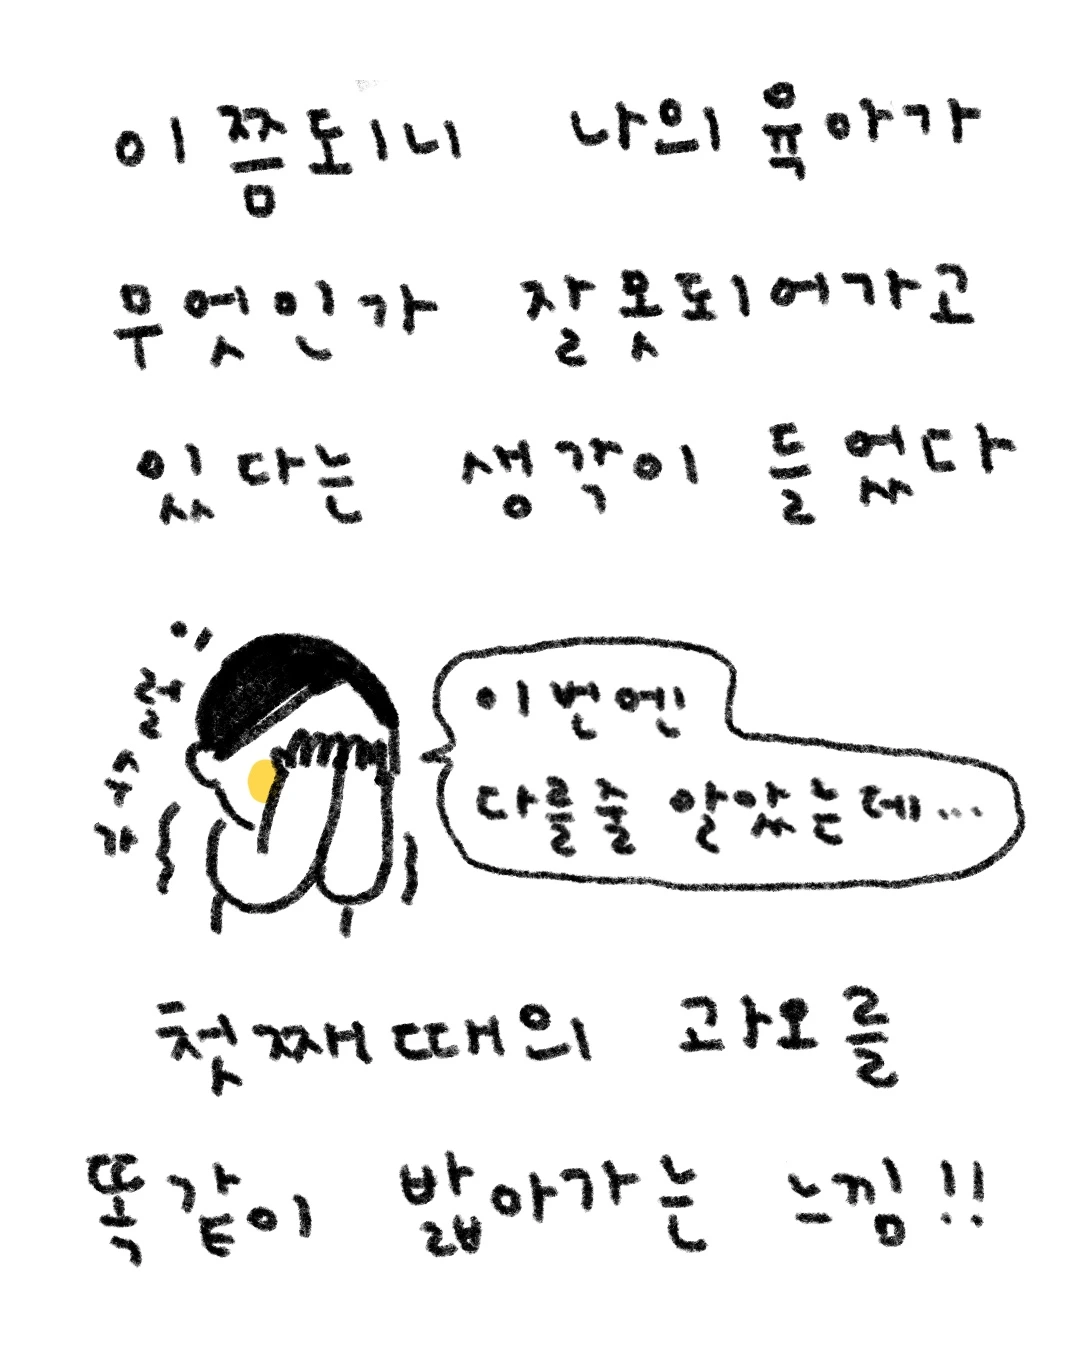 이쯤되니 나의 육아가
무엇인가 잘못되어가고
있다는 생각이 들었다
이럴수가
이번엔
다를줄 알았는데...
첫째때의 과오를
똑같이 밟아가는 느낌!!